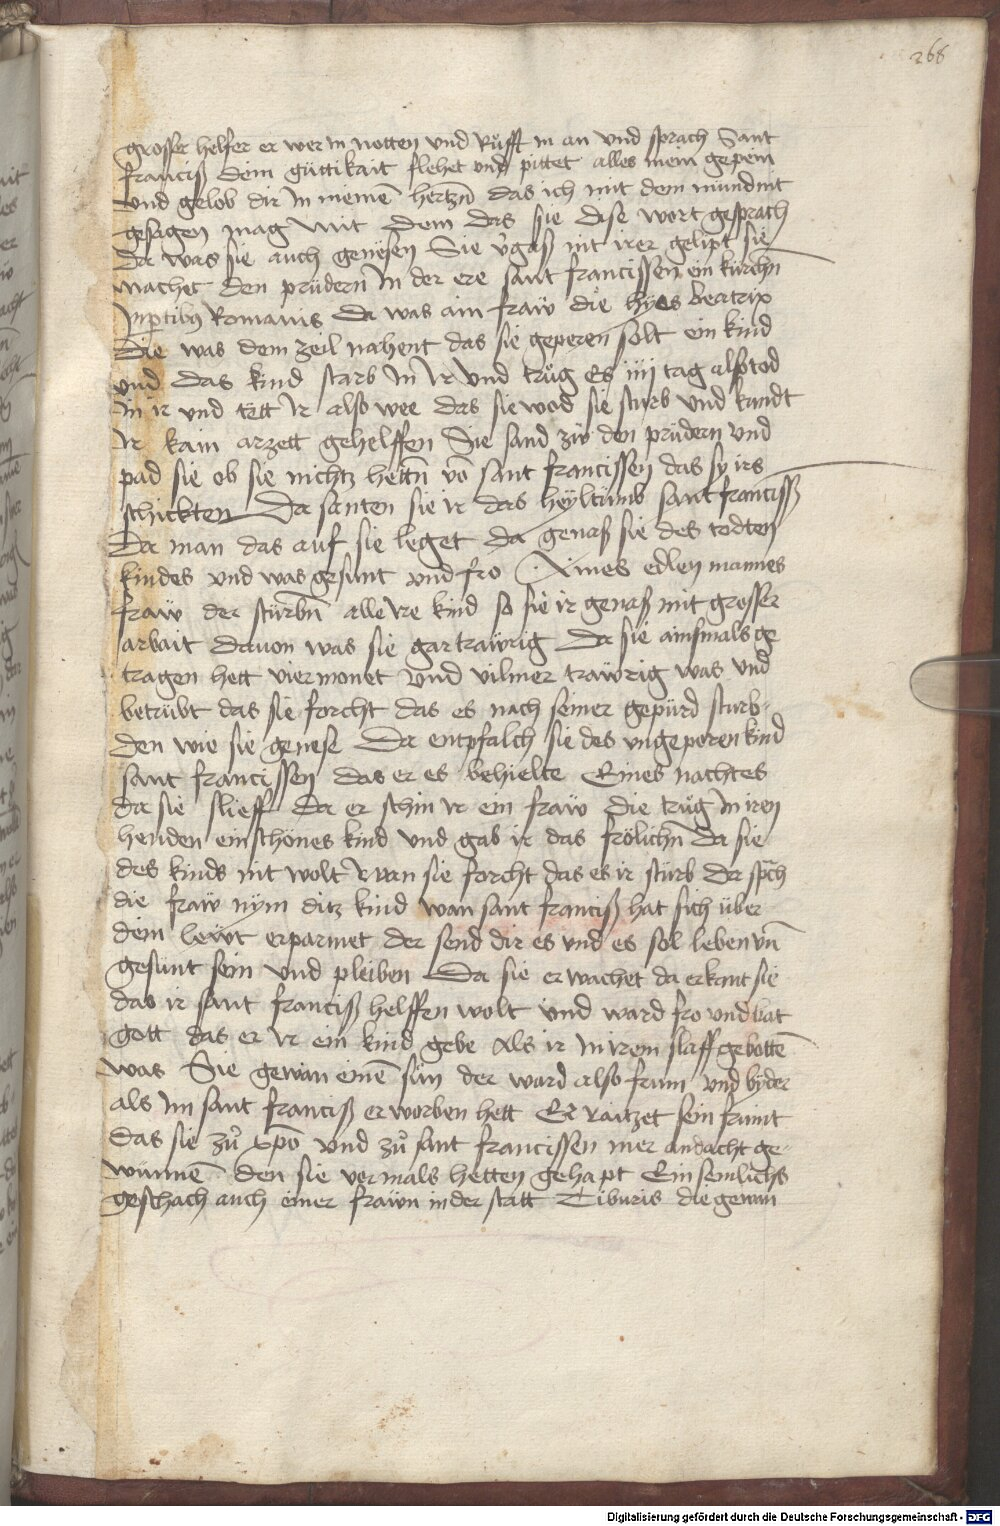 268
grosser helfer er wer in notten und Rüfft in an und sprach Sant
franciß dein güttikait flehet und pittet alles mein gepein
und gelob dir in meinē hertzn̄ das ich mit dem mund nit
gesagen mag Mit dem das sie dise wort gesprach
da was sie auch genesen Sie v̉gaß nit irer gelipt sie
machet den prüdern̄ In der ere sant francissen ein kirchn̄
In ꝑtibꝰ Romanis Da was ain fraẅ die hyes beatrix
die was dem zeil nahent das sie geperen solt ein kind
und das kind starb In Ir und trüg es iiij tag also tod
in ir und tett Ir also wee das sie wod sie sturb und kundt
Ir kain arzett gehelffen Sie sand zw den prüdern und
pad sie ob sie nichtz hettn̄ vō sant francissen das sy irs
schickten Da santen sie ir das heyltumb sant franciss
Da man das auf sie leget da genaß sie des todten
kindes und was gesunt und fro Aines edlen mannes
fraẅ der stürbn̄ alle Ire kind so sie ir genaß mit grosser
arbait dauon was sie gar traẅrig Da sie ainsmals ge
tragen hett vier monet und vil mer traẅrig was und
betrübt das sie forcht das es nach seiner gepürd sturb
den wie sie genese Da entpfalch sie des ungeporen kind
sant francissen das er es behielte Eines nachtes
da sie slieff da er schin Ir ein fraẅ die trüg In iren
henden ein schönes kind und gab ir das frölichn̄ da sie
des kinds nit wolt wan sie forcht das es ir stürb da spch̄
die fraẅ nym ditz kind wan sant franciß hat sich über
dein leẅt erparmet der send dir es und es sol leben vn̄
gesunt sein und pleiben Da sie erwachet da erkant sie
das ir sant franciß helffen wolt und ward fro und bat
gott das er Ir ein kind gebe als ir In irem slaff gebottē
was Sie gewan einē sün der ward also frum und byder
als im sant franciß erworben hett Er raitzet sein frunt
das sie zu̇ xp̄o und zu̇ sant francissen mer andacht ge
winnē den sie vormals hetten gehapt Ein semlichs
geschach auch einer fraẅn in der statt Tiburis die gewan
Digitalisierung gefördert durch die Deutsche Forschungsgemeinschaft - DFG